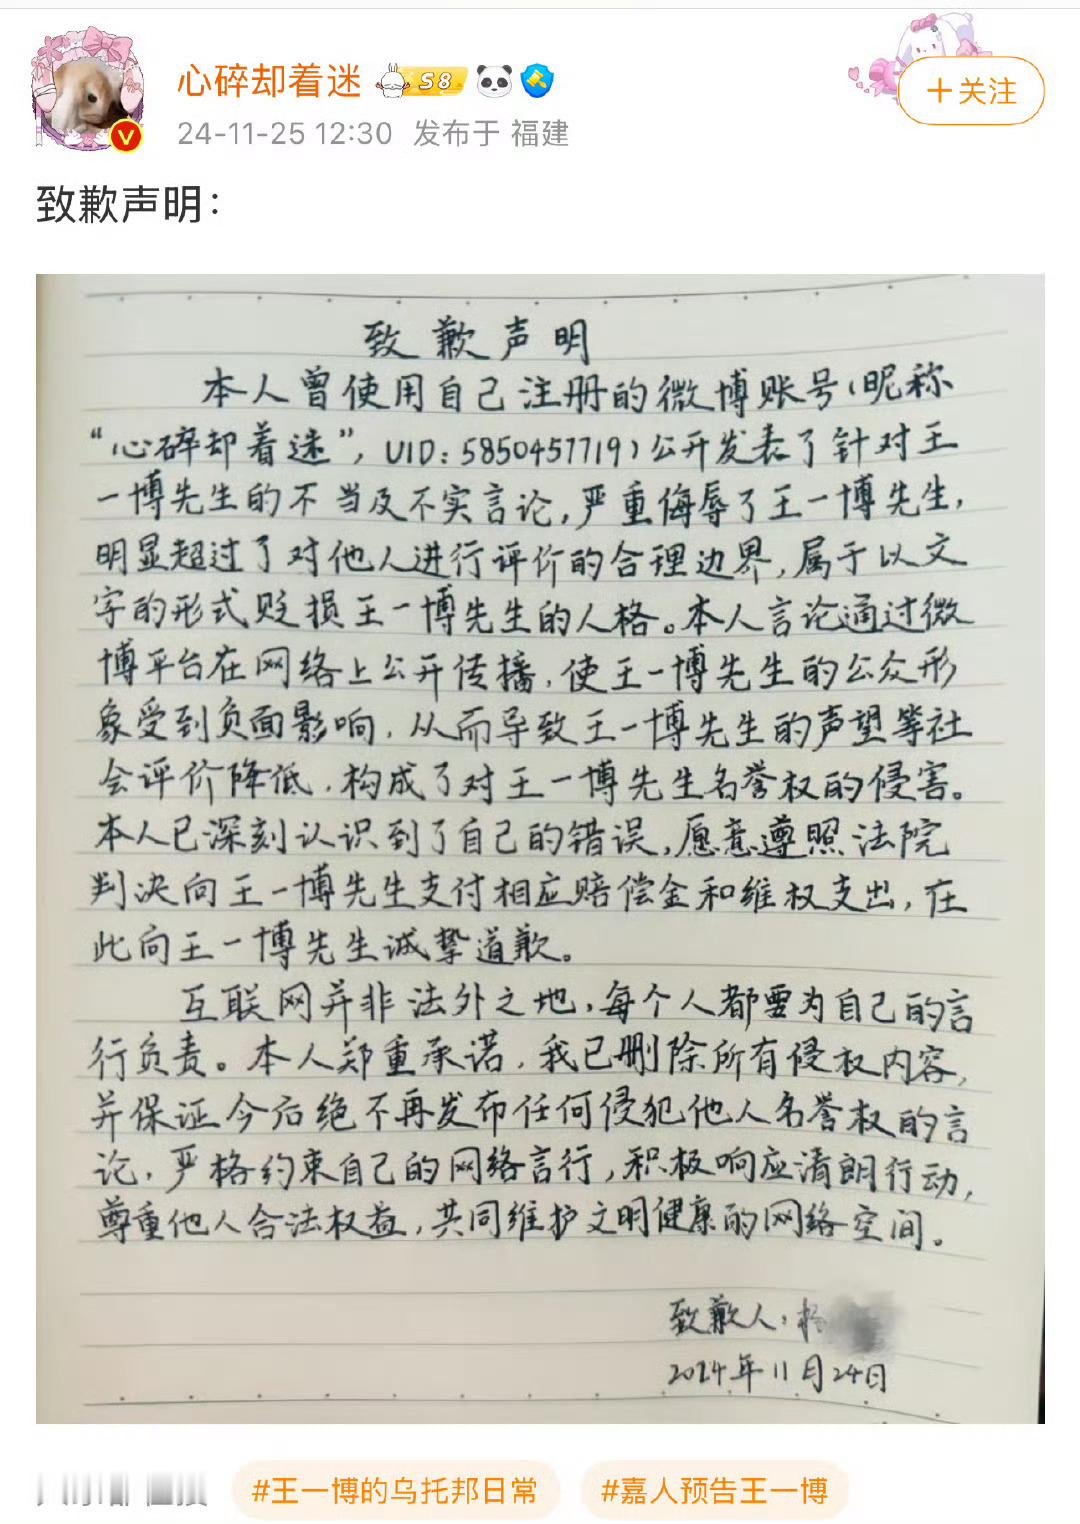 心碎却着迷 S8
+关注
24-11-25 12:30 发布于 福建
致歉声明：
致歉声明
本人曾使用自己注册的微博账号（昵称
“心碎却着迷”，UID：5850457719）公开发表了针对王
一博先生的不当及不实言论，严重侮辱了王一博先生，
明显超过了对他人进行评价的合理边界，属于以文
字的形式贬损王一博先生的人格。本人言论通过微
博平台在网络上公开传播，使王一博先生的公众形
象受到负面影响，从而导致王一博先生的声望等社
会评价降低，构成了对王一博先生名誉权的侵害。
本人已深刻认识到了自己的错误，愿意遵照法院
判决向王一博先生支付相应赔偿金和维权支出，在
此向王一博先生诚挚道歉。
互联网并非法外之地，每个人都要为自己的言
行负责。本人郑重承诺，我已删除所有侵权内容，
并保证今后绝不再发布任何侵犯他人名誉权的言
论，严格约束自己的网络言行，积极响应清朗行动，
尊重他人合法权益，共同维护文明健康的网络空间。
致歉人：杨
2024年11月24日
#王一博的乌托邦日常 #嘉人预告王一博